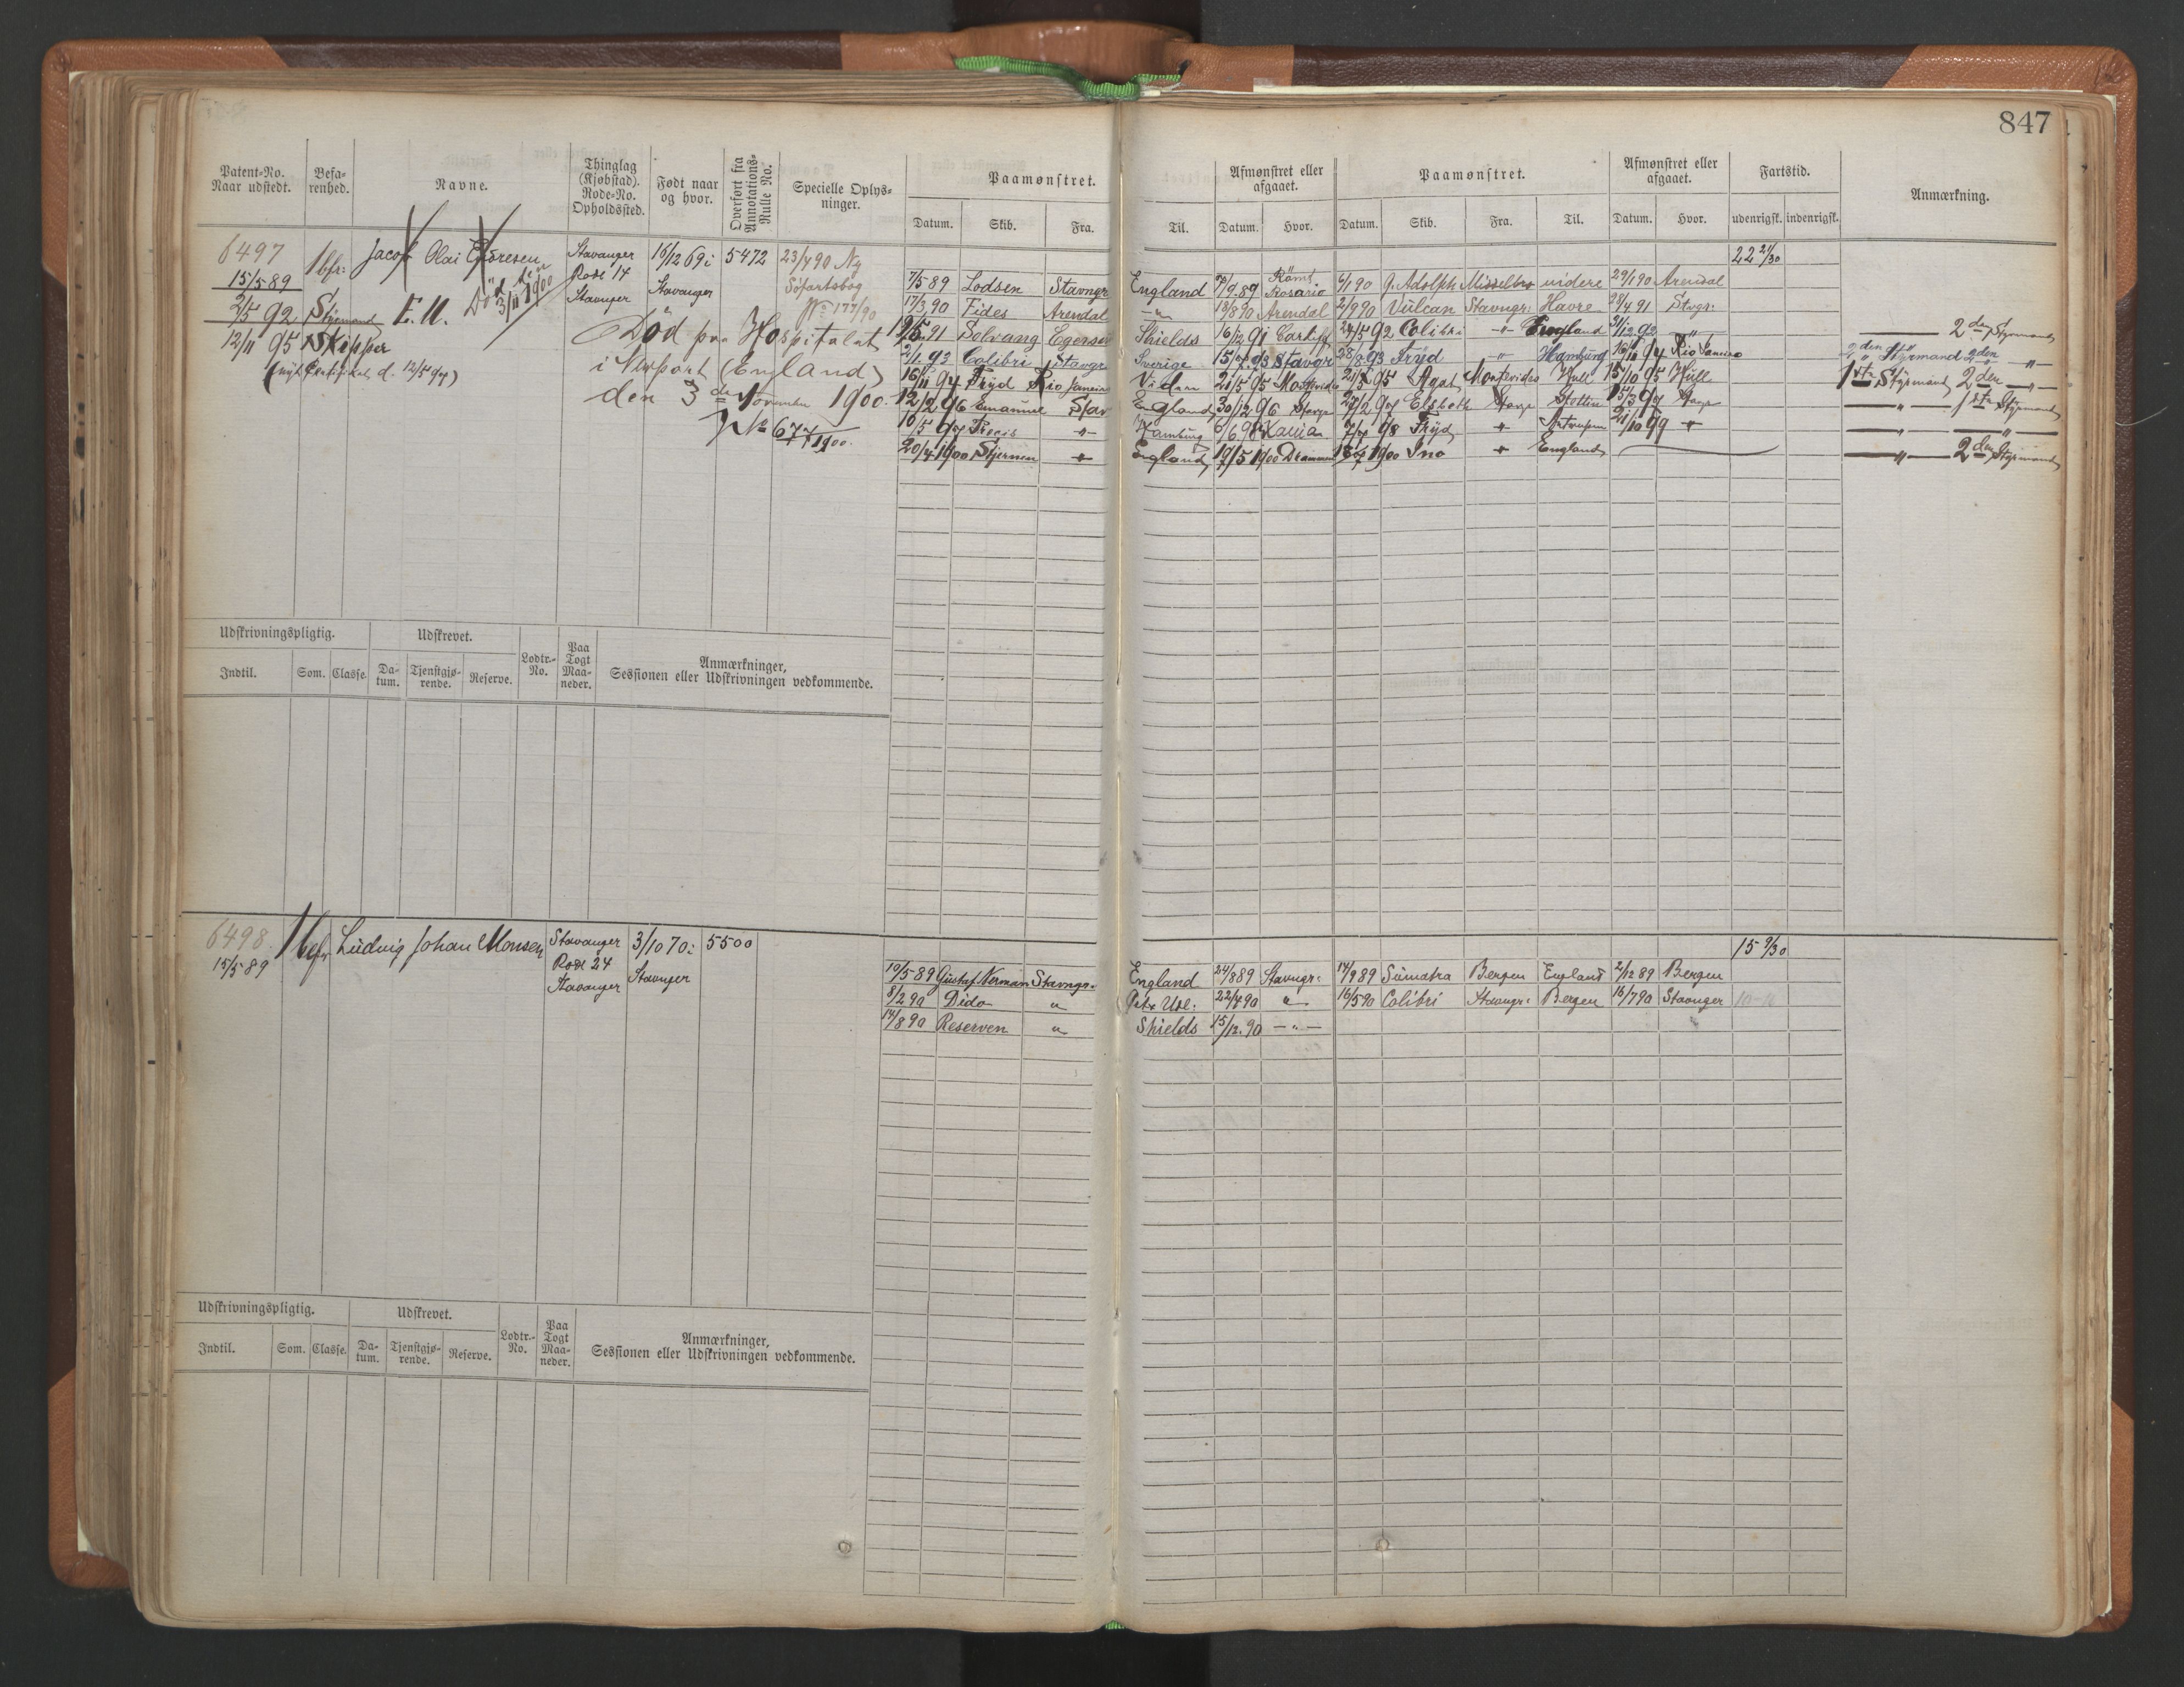 847
Patent-No. Naar udstedt. Befa-renhed. Navne. Thinglag (Kjøbstad). Rode-No. Opholdssted. Født naar og hvor. Overført fra Annotations-Rulle No. Specielle Oplys-ninger. Paamønstret. Afmønstret eller afgaaet. Paamønstret. Afmønstret eller afgaaet. Fartstid. Anmærkning.
Datum. Skib. Fra. Til. Datum. Hvor. Datum. Skib. Fra. Til. Datum. Hvor. udenrigsk. indenrigsk.
6497 1bfr: Jacob Olai Stavanger 16/12 69 i 5472 23/4 90 Ny 22 21/30
15/5 89 Død den 3/11 1900 Rode 14 Stavanger Søfartsbog
2/5 92 Styrmand E. U. Stavnger No 177/90
12/11 95 Skipper
(nyt Certifikat d. 12/5 97)
Død paa Hospitalet
i Newport (England)
den 3de November 1900.
No 677/1900.
7/5 89 Lodsen Stavngr England 7/9 89 Rømt Rosario 6/1 90 G. Adolph videre 29/1 90 Arendal
17/3 90 Fides Arendal -"- 13/8 90 Arendal 2/9 90 Vulcan Stavngr: Havre 28/4 91 Stvgr:
19/5 91 Solvang Shields 16/12 91 Cardiff 27/5 92 Colibri -"- England 21/12 92 " 2den Styrmand
2/1 93 Colibri Stavgr Sverige 15/7 93 Stavgr 28/8 93 Fryd -"- Hamburg 16/11 94 Rio Janeiro 2den Styrmand 2den -"-
16/11 94 Fryd Rio Janeiro Videre 21/5 95 Montevideo 21/5 95 Agat Montevideo Hull 15/10 95 Hull 1ste Styrmand 2den -"-
12/2 96 Emanuel Stav England 30/12 96 Stavgr 27/2 97 Elsbeth Stavgr Stettin 15/3 97 Stavgr -"- 1ste Styrmand
10/5 97 Precis -"- Hamburg 9/6 98 7/7 98 Fryd " Antwerpen 21/10 99 " -"- -"-
20/4 1900 Stjernen " England 19/5 1900 Drammen 1900 Ino " England -"- 2den Styrmand
Udskrivningspligtig. Udskrevet. Lodtr.-No. Paa Togt Maa-neder. Anmærkninger, Sessionen eller Udskrivningen vedkommende.
Indtil. Som. Classe. Da-tum. Tjenstgjø-rende. Reserve.
6498 1bfr Ludvig Johan Monsen Stavanger 3/10 70 i 5500 15 9/30
15/5 89 Rode 24 Stavnger
Stavanger
10/5 89 Gustaf Nerman Stavngr. England 24/8 89 Stavngr: 14/9 89 Sumatra Bergen England 2/12 89 Bergen
8/2 90 Dido " 22/4 90 " 16/5 90 Colibri Stavngr: Bergen 16/7 90 Stavnger 10-16
14/8 90 Reserven " Shields 15/12 90 -"-
Udskrivningspligtig. Udskrevet. Lodtr.-No. Paa Togt Maa-neder. Anmærkninger, Sessionen eller Udskrivningen vedkommende.
Indtil. Som. Classe. Da-tum. Tjenstgjø-rende. Reserve.